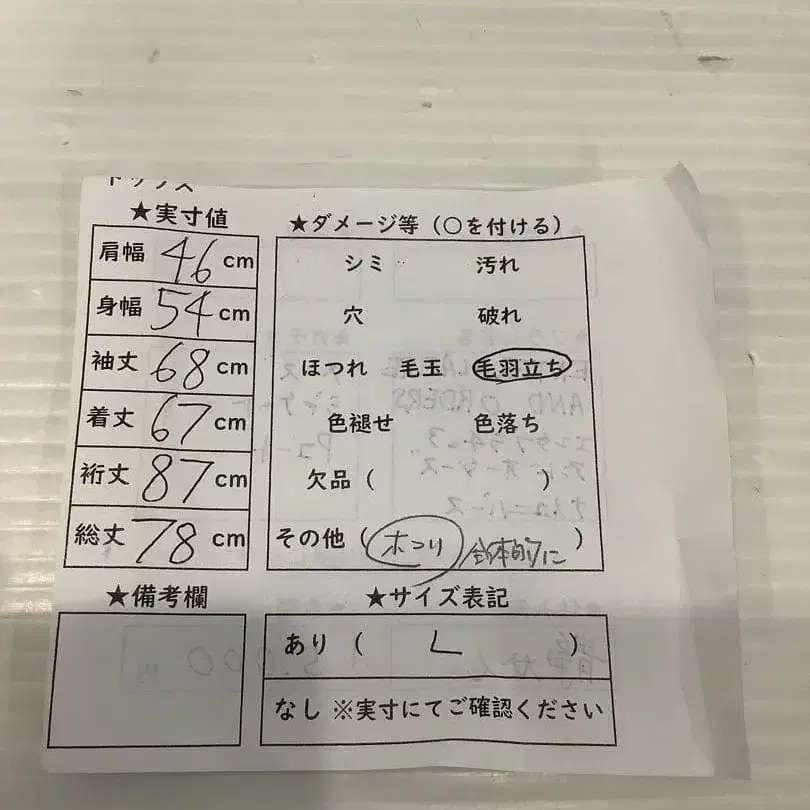 トップス
★実寸値
肩幅 46 cm
身幅 54 cm
袖丈 68 cm
着丈 67 cm
裄丈 87 cm
総丈 78 cm
★備考欄
★ダメージ等（○を付ける）
シミ 汚れ
穴 破れ
ほつれ 毛玉 毛羽立ち
色褪せ 色落ち
欠品（ ）
その他（ホコリ 全体的に）
★サイズ表記
あり（ L ）
なし ※実寸にてご確認ください